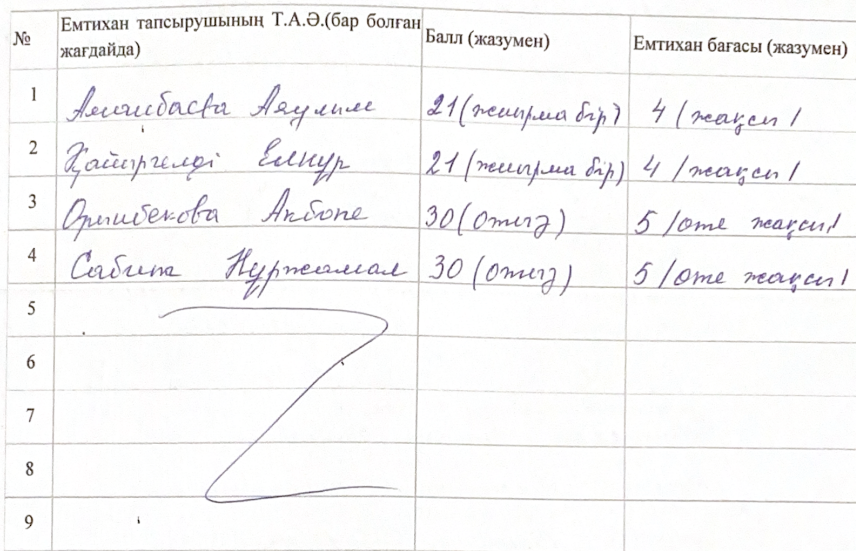 № Емтихан тапсырушының Т.А.Ә.(бар болған жағдайда) Балл (жазумен) Емтихан бағасы (жазумен)
1 Аманбаева Аяулым 21 (жиырма бір) 4 /жақсы/
2 Қайыргелді Елнұр 21 (жиырма бір) 4 /жақсы/
3 Орынбекова Акбопе 30 (отыз) 5 /өте жақсы/
4 Сабина Нұржамал 30 (отыз) 5 /өте жақсы/
5
6
7
8
9